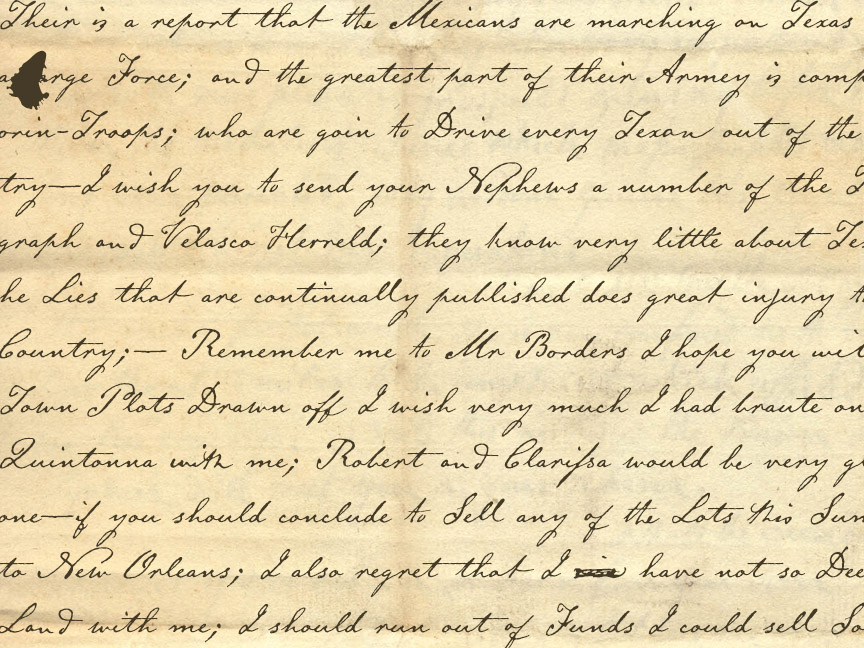 Their is a report that the Mexicans are marching on Texas
Force; and the greatest part of their Armey is
Troops; who are goin to Drive every Texan out of the
try—I wish you to send your Nephews a number of the
graph and Velasco Herreld; they know very little about
he Lies that are continually published does great injury
Country;— Remember me to Mr Borders I hope you
Town Plots Drawn off I wish very much I had braute on
Quintanna with me; Robert and Clariſsa would be very
one—if you should conclude to Sell any of the Lots this
to New Orleans; I also regret that I have not so
Land with me; I should run out of Funds I could sell